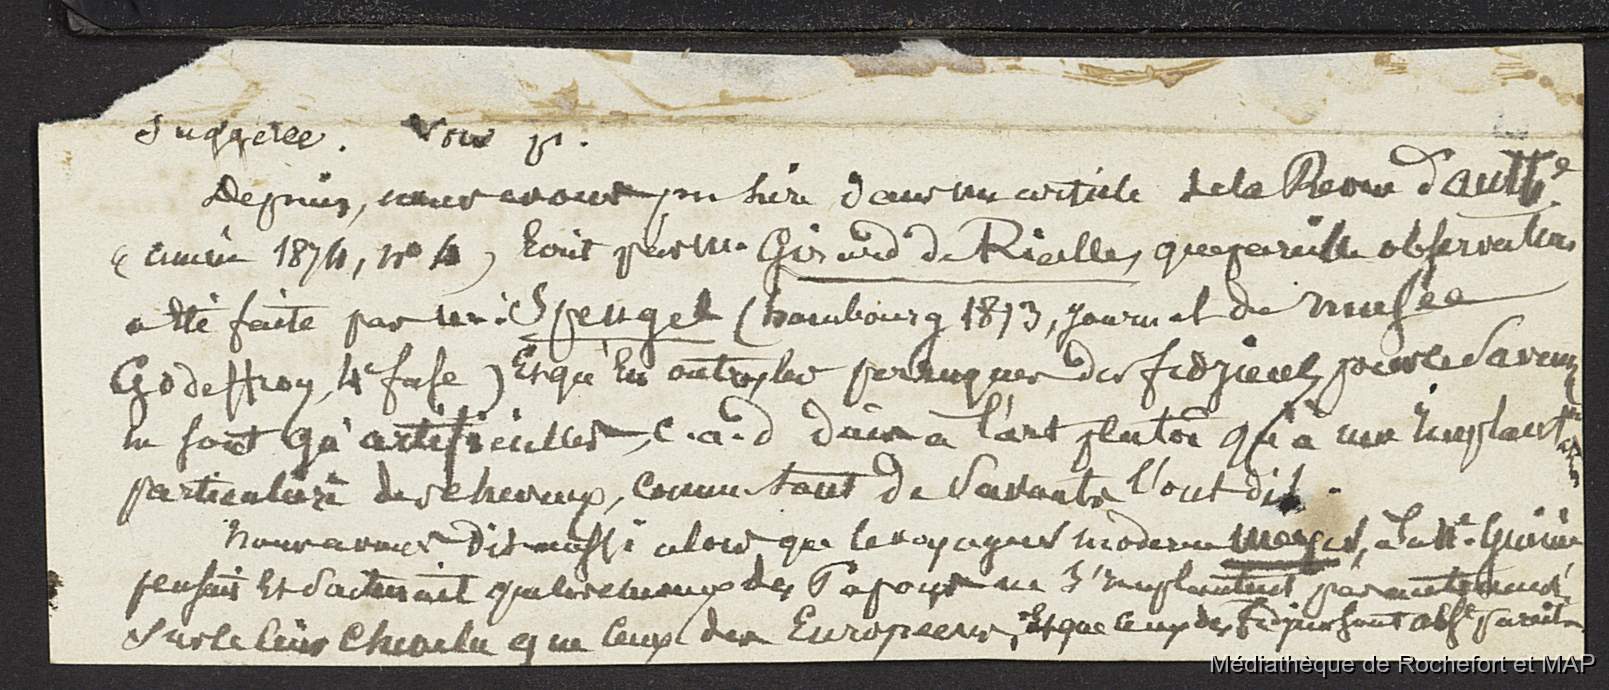 suggérée. Voir p.
Depuis, nous avons pu lire dans un article de la Revue d'antth.e
(année 1874, no 4) écrit par m. Girard de Rialle, que pareille observation
a été faite par m. Spengel (hambourg 1873, journal de musée
Godeffroy, 4e fasc) Et qu'en outre, les perruques des fidjiens, pour le savant
ne sont qu'artificielles, c.a.d dues à l'art plutôt qu'à une implantton
particulière des cheveux, comme tant de savants l'ont dit.
Nous avons dit aussi alors que le voyageur moderne meyer, à la Nle Guinée
pensait et soutenait que les cheveux des Papous ne s'implantent pas autrement
sur le cuir chevelu que ceux des Européens, Et que ceux des fidjiens sont abst pareils
Médiathèque de Rochefort et MAP